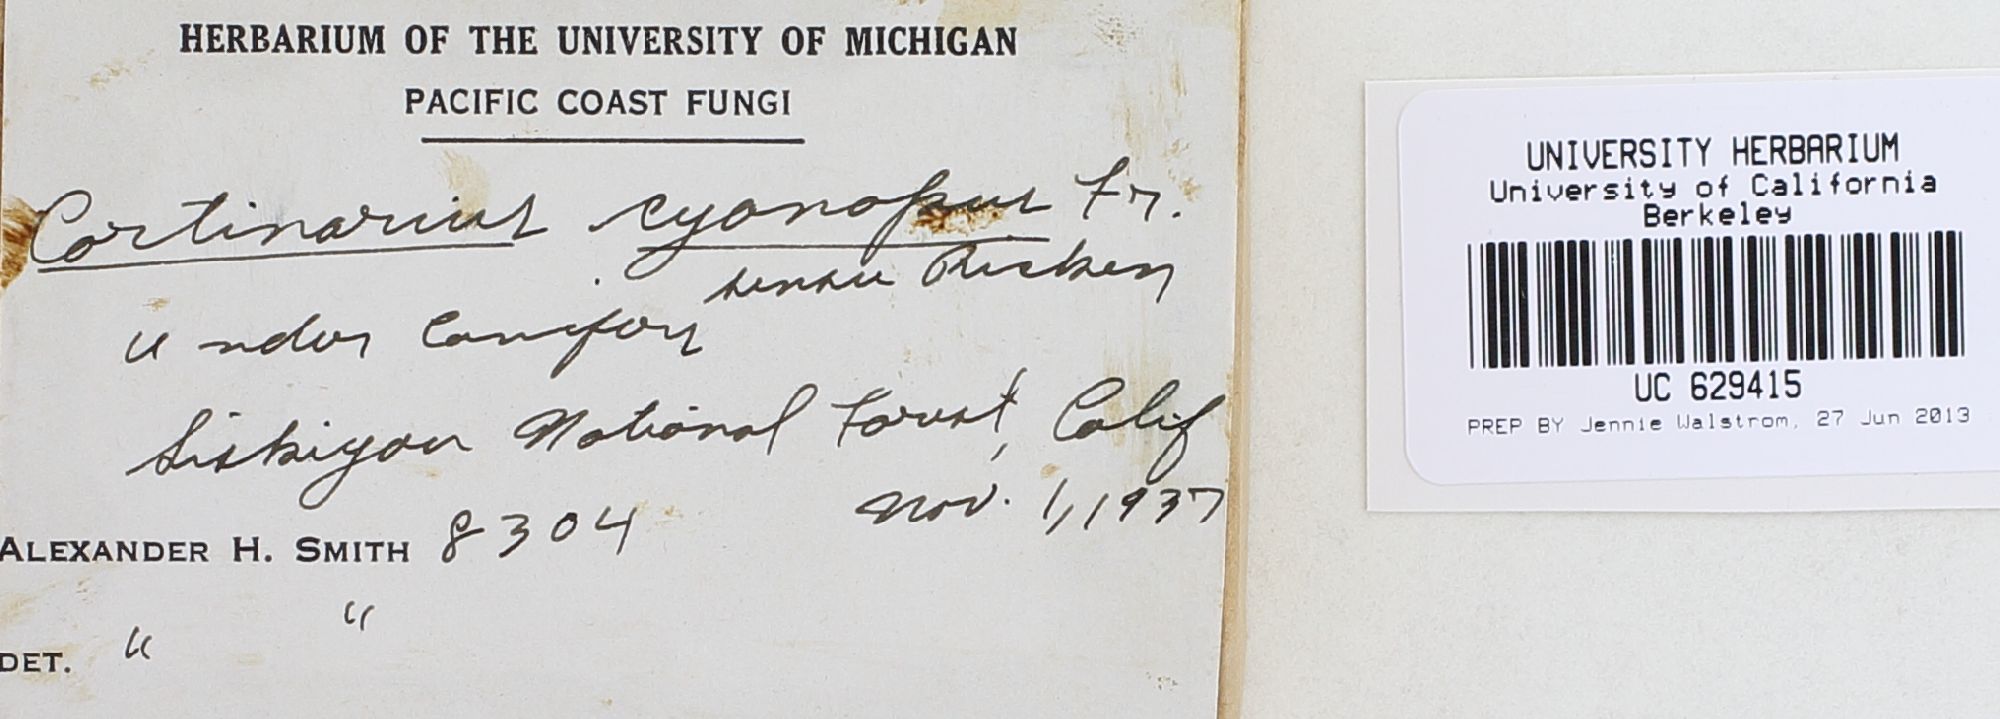 HERBARIUM OF THE UNIVERSITY OF MICHIGAN
PACIFIC COAST FUNGI
Cortinarius cyanopus Fr.
sensu Ricken
Under Conifers
Siskiyou National Forest, Calif
Nov. 1, 1937
ALEXANDER H. SMITH 8304
DET. " "
UNIVERSITY HERBARIUM
University of California
Berkeley
UC 629415
PREP BY Jennie Walstrom, 27 Jun 2013